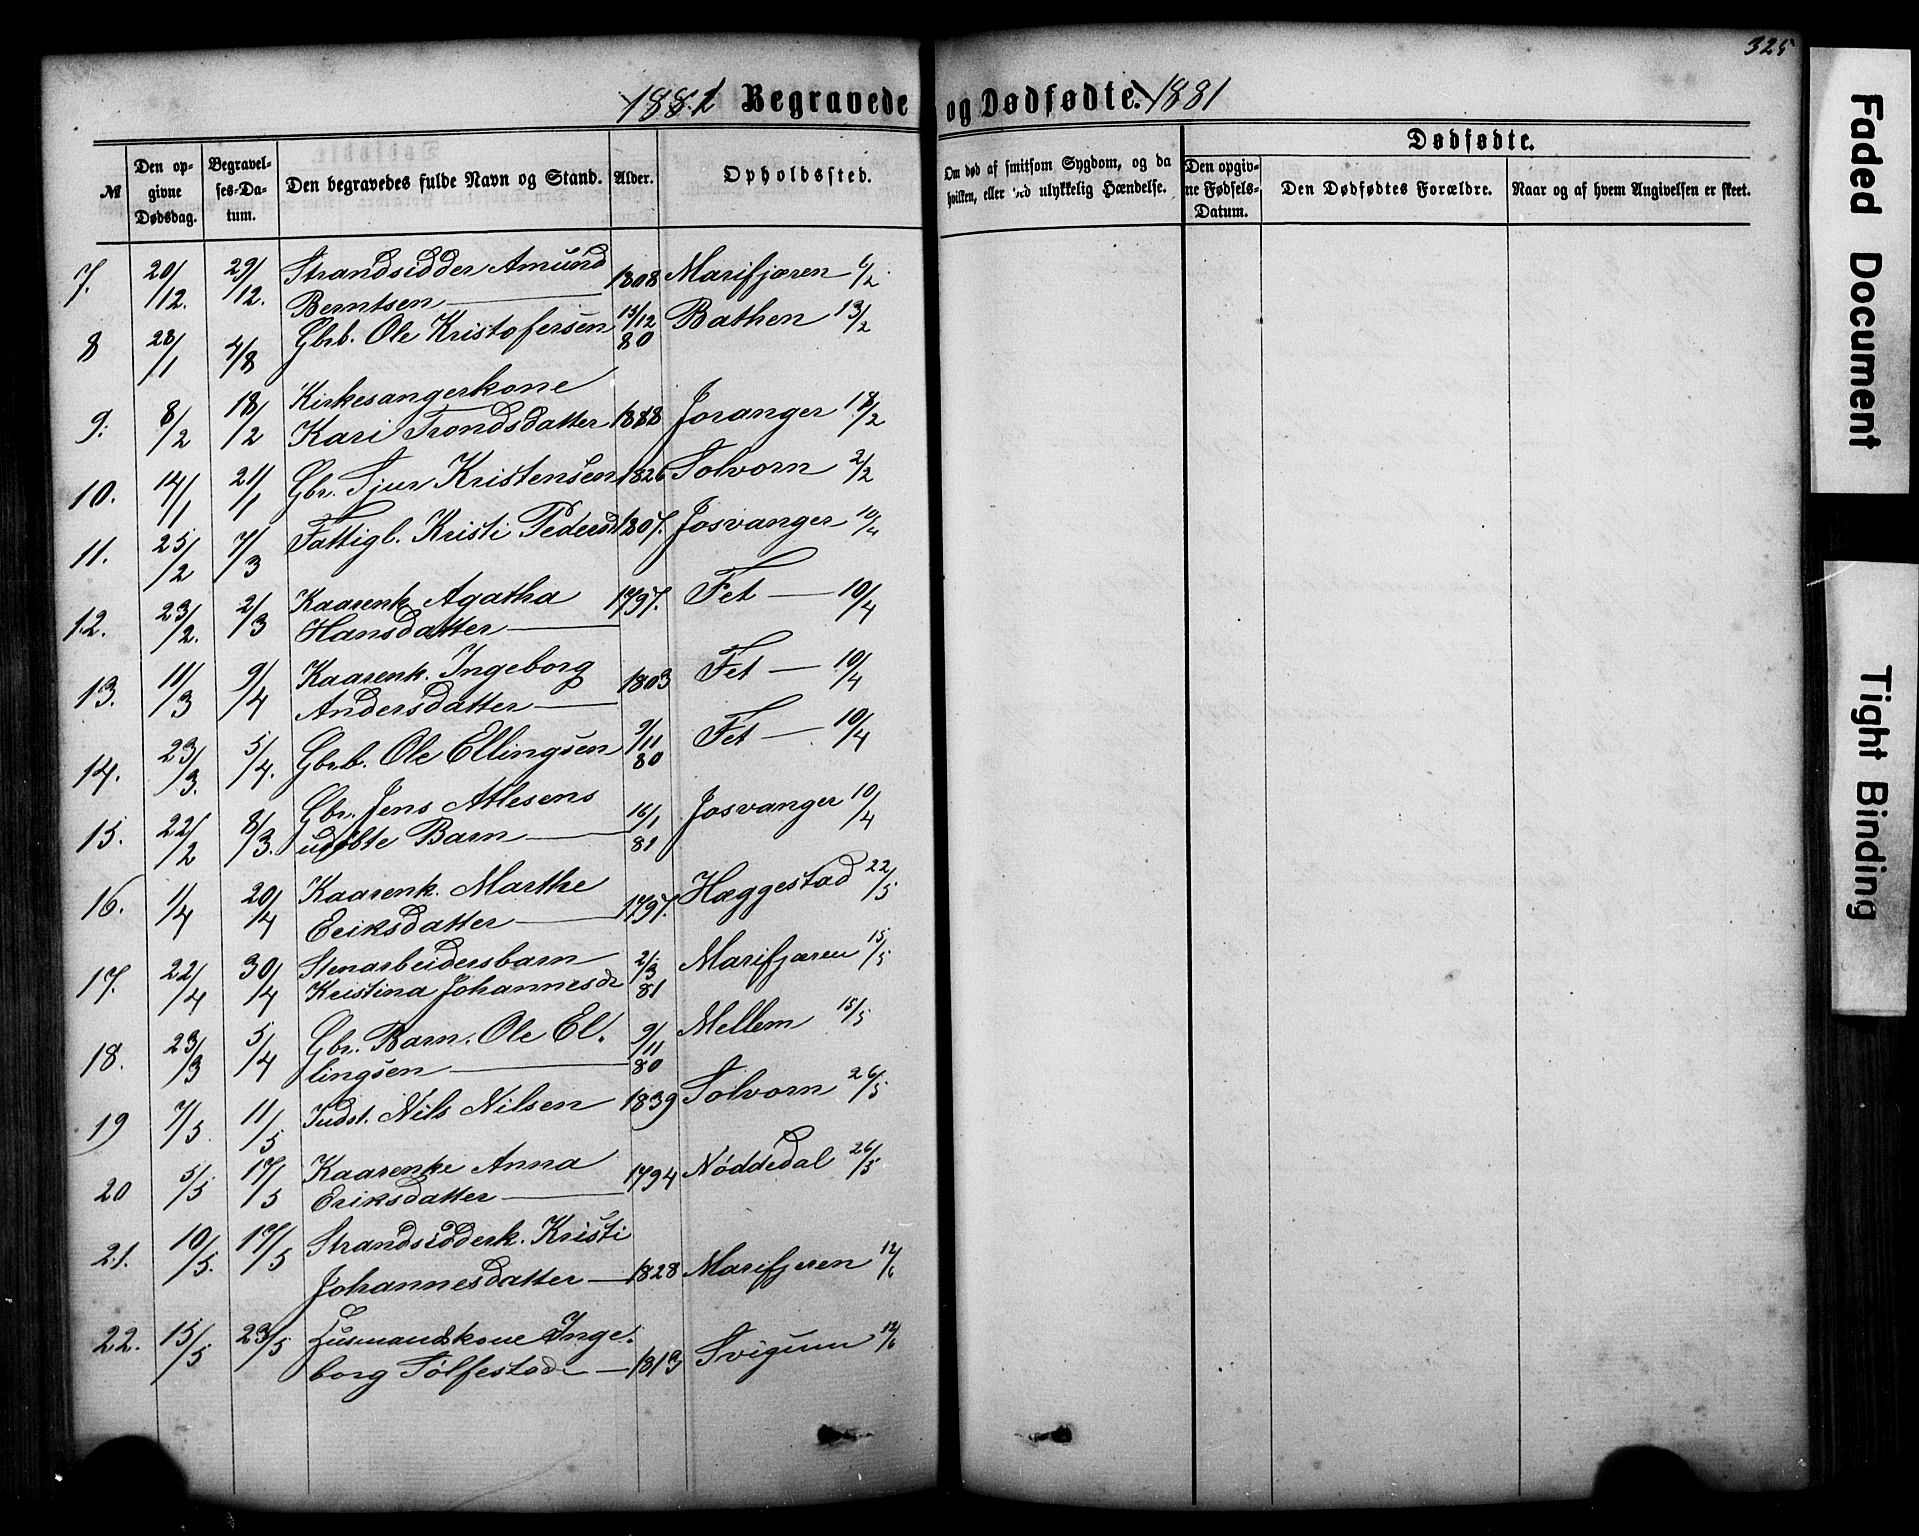 325
1881 Begravede og Dødfødte. 1881
№ Den opgivne Dødsdag. Begravelses-Datum. Den begravedes fulde Navn og Stand. Alder. Opholdssted. Om død af smitsom Sygdom, og da hvilken, eller ved ulykkelig Hændelse. Dødfødte. Den opgivne Fødsels-Datum. Den Dødfødtes Forældre. Naar og af hvem Angivelsen er skeet.
7. 20/12. 29/12. Strandsidder Amund 1808 Marifjæren 6/2
Berntsen
8 28/1 4/8 Gbrb. Ole Kristofersen 13/12 80 Bathen 13/2
Kirkesangerkone
9. 8/2 18/2 Kari Trondsdatter 1888 Joranger 18/2
10. 14/1 21/1 Gbr. Sjur Kristensen 1826 Solvorn 2/2
11. 25/2 7/3 Fattigl. Kristi Pedersd 1807. Josvanger 10/4
12. 23/2. 2/3 Kaarenk Agatha 1797. Fet — 10/4
Hansdatter
13. 11/3 9/4 Kaarenk. Ingeborg 1803 Fet — 10/4
Andersdatter
14. 23/3. 5/4. Gbrb. Ole Ellingsen 9/11 80 Fet — 10/4
15. 22/2 8/3. Gbr. Jens Atlesens 16/1 81 Josvanger 10/4
udøbte Barn
16. 1/4 20/4 Kaarenk. Marthe 1797. Hæggestad 22/5
Eriksdatter
17. 22/4 30/4 Stenarbeidersbarn 2/3 81 Marifjæren 15/5
Kristina Johannesd
18. 23/3 5/4 Gbr. Barn. Ole El. 9/11 80 Mellem 15/5
lingsen
19 7/5. 11/5 Indst. Nils Nilsen 1839 Solvorn 26/5
20 5/5 17/5 Kaarenke Anna 1794 Nøddedal 26/5
Eriksdatter
21. 10/5. 17/5 Strandsidderk. Kristi
Johannesdatter — 1828 Marifjeren 12/6
22. 15/5 23/5 Husmandskone Inge.
borg Tølfestad — 1813 Svigum 12/6
Faded Document
Tight Binding